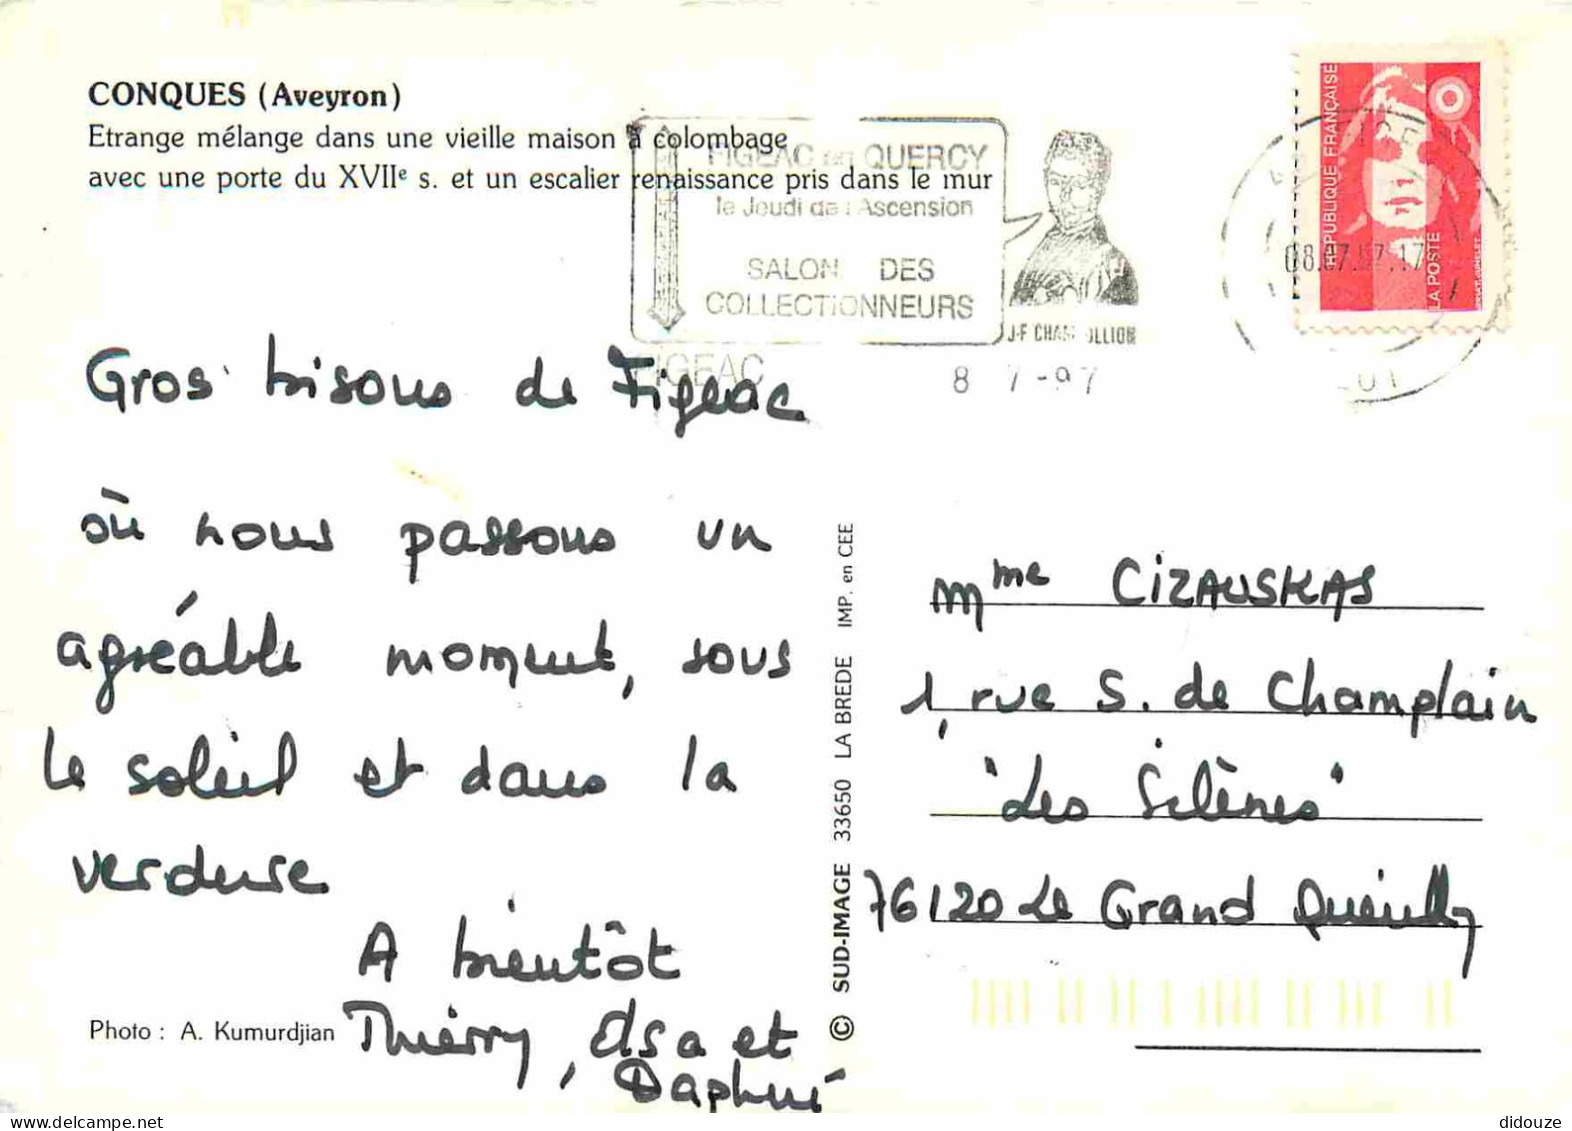 CONQUES (Aveyron)
Etrange mélange dans une vieille maison à colombage
avec une porte du XVIIe s. et un escalier renaissance pris dans le mur
FIGEAC en QUERCY
le Jeudi de l'Ascension
SALON DES
COLLECTIONNEURS
J-F CHAMPOLLION
FIGEAC
8 7-97
REPUBLIQUE FRANÇAISE
LA POSTE
08.07.97.17
LOT
Gros bisous de Figeac
où nous passons un
agréable moment, sous
le soleil et dans la
verdure
A bientôt
Thierry, Elsa et
Daphné
Photo : A. Kumurdjian
© SUD-IMAGE 33650 LA BREDE IMP. en CEE
Mme CIZAUSKAS
1, rue S. de Champlain
"Les Silènes"
76120 Le Grand Quevilly
didouze